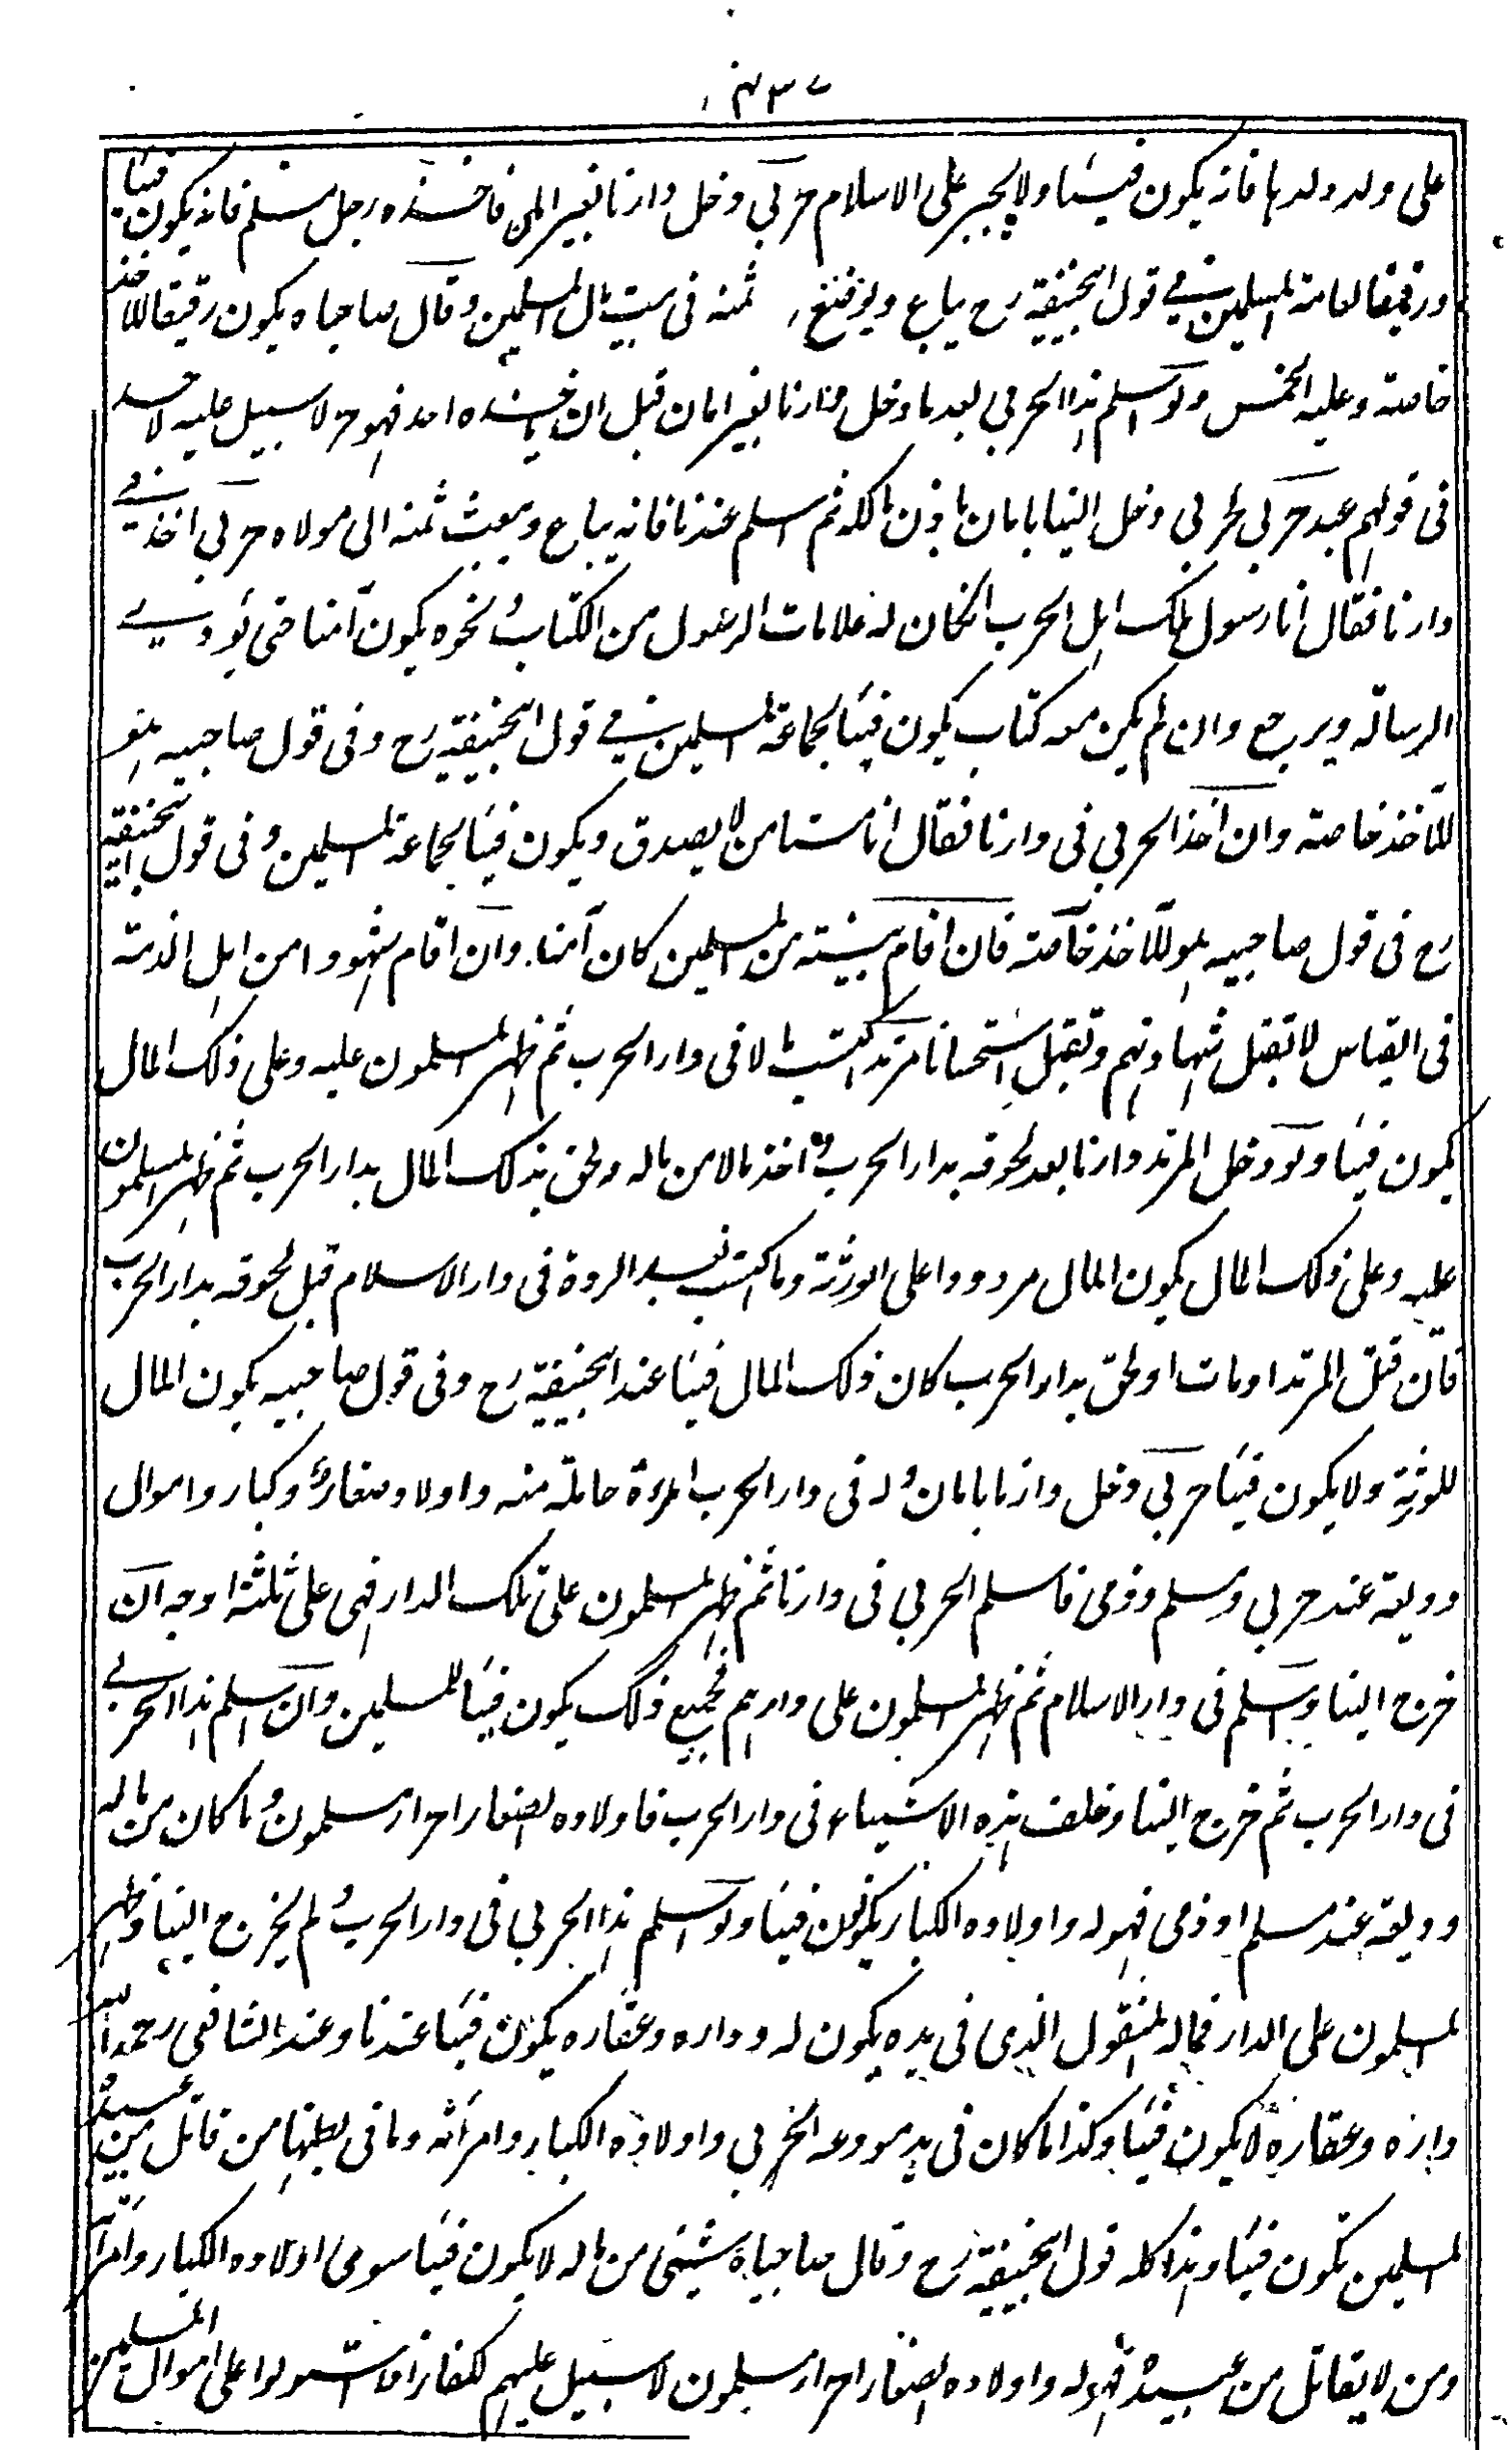 ۴۳۷
على ولد ولدها فانه يكون فيئا ولا يجبر على الاسلام حربي دخل دارنا بغير امان فاخذه رجل مسلم فانه يكون فيئا
ورقيقا لعامة المسلمين في قول ابيحنيفة رح يباع ويوضع ثمنه فى بيت مال المسلمين وقال صاحباه يكون رقيقا للآخذ
خاصة وعليه الخمس ولو اسلم هذا الحربي بعد ما دخل دارنا بغير امان قبل ان ياخذه احد فهو حر لا سبيل عليه لاحد
فى قولهم عبد حربي لحربي دخل الينا بامان باذن مالكه ثم اسلم عندنا فانه يباع ويبعث ثمنه الى مولاه حربي اخذ في
دارنا فقال انا رسول ملك اهل الحرب انكان له علامات الرسول من الكتاب ونحوه يكون آمنا حتى يؤدي
الرسالة ويرجع وان لم يكن معه كتاب يكون فيئا لجماعة المسلمين في قول ابيحنيفة رح وفى قول صاحبيه هو
للآخذ خاصة وان اخذ الحربي فى دارنا فقال انا مستامن لا يصدق ويكون فيئا لجماعة المسلمين فى قول ابيحنيفة
رح فى قول صاحبيه هو للآخذ خاصة فان اقام بينة من المسلمين كان آمنا وان اقام شهودا من اهل الذمة
فى القياس لا تقبل شهادتهم وتقبل استحسانا مرتد اكتسب مالا فى دار الحرب ثم ظهر المسلمون عليه وعلى ذلك المال
يكون فيئا ولو دخل المرتد دارنا بعد لحوقه بدار الحرب واخذ مالا من ماله ولحق بذلك المال بدار الحرب ثم ظهر المسلمون
عليه وعلى ذلك المال يكون المال مردودا على الورثة وما اكتسب بعد الردة فى دار الاسلام قبل لحوقه بدار الحرب
فان قتل المرتد او مات او لحق بدار الحرب كان ذلك المال فيئا عند ابيحنيفة رح وفى قول صاحبيه يكون المال
للورثة ولا يكون فيئا حربي دخل دارنا بامان وله فى دار الحرب امراة حاملة منه واولاد صغار وكبار واموال
وديعة عند حربي ومسلم وذمى فاسلم الحربي فى دارنا ثم ظهر المسلمون على تلك الدار فهى على ثلثة اوجه ان
خرج الينا واسلم فى دار الاسلام ثم ظهر المسلمون على دارهم فجميع ذلك يكون فيئا للمسلمين وان اسلم هذا الحربي
فى دار الحرب ثم خرج الينا وخلف هذه الاشياء فى دار الحرب فاولاده الصغار احرار مسلمون وما كان من ماله
وديعة عند مسلم او ذمى فهو له واولاده الكبار يكون فيئا ولو اسلم هذا الحربي فى دار الحرب ولم يخرج الينا وظهر
المسلمون على الدار فماله المنقول الذى فى يده يكون له وداره وعقاره يكون فيئا عندنا وعند الشافعى رحمه الله
داره وعقاره لا يكون فيئا وكذا ما كان فى يد مودعه الحربي واولاده الكبار وامرأته وما فى بطنها من قاتل من عبيده
المسلمين تكون فيئا وهذا كله قول ابيحنيفة رح وقال صاحباه شيئى من ماله لا يكون فيئا سوى اولاده الكبار وامرأته
ومن لا يقاتل من عبيده فهو له واولاده الصغار احرار مسلمون لا سبيل عليهم كفار استولوا على اموال المسلمين